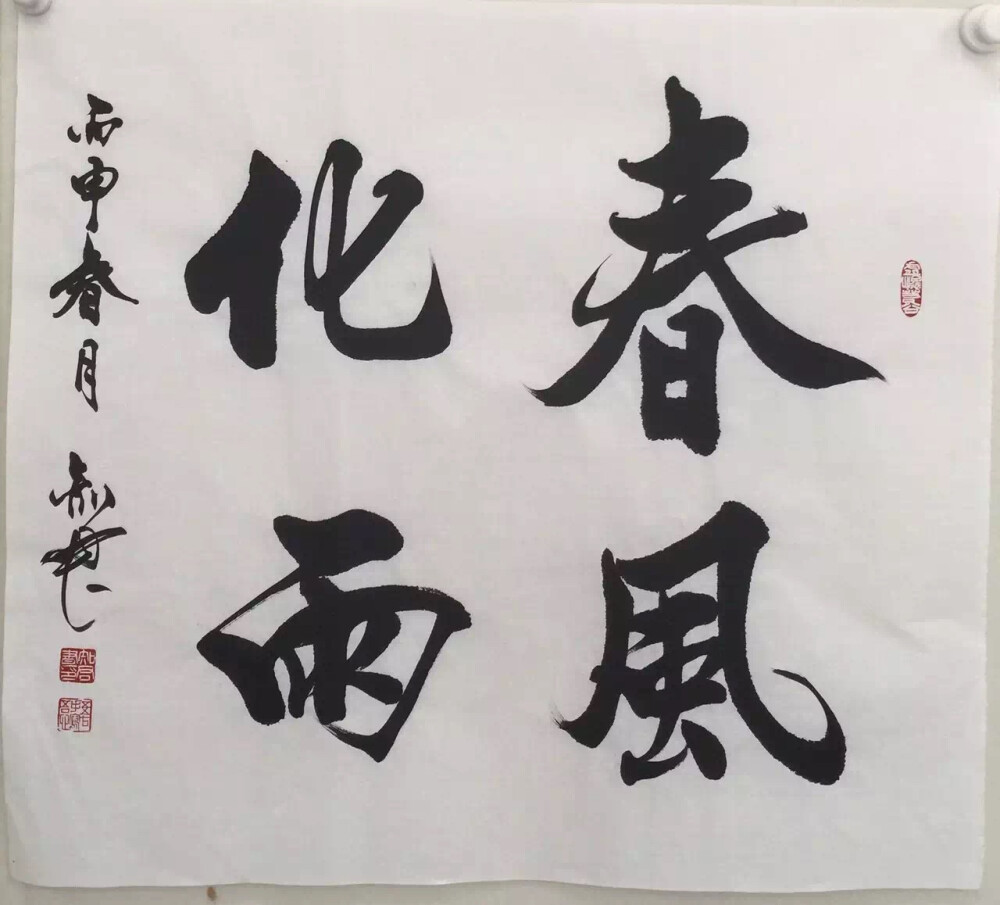 春風
化雨
丙申春月